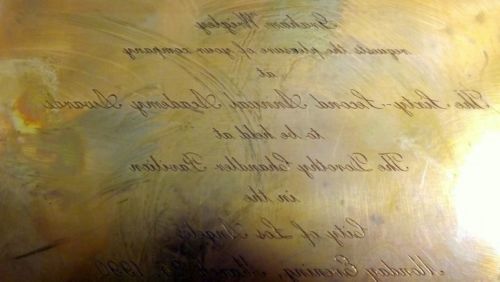 Graham
requests the pleasure of your company
at
The Sixty-Second Annual Academy Awards
to be held at
The Dorothy Chandler Pavilion
in the
City of Los Angeles
Monday Evening, March 26, 1990